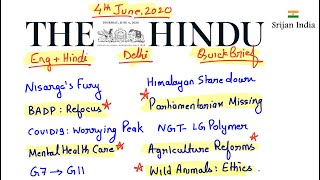 4th June, 2020
Srijan India
THE HINDU
Eng + Hindi
Delhi
Quick Brief
Nisarga's Fury
BADP : Refocus
COVID19: Worrying Peak
Mental Health Care
G7 → G11
Himalayan Staredown
Parliamentarian Missing
NGT- LG Polymer
Agriculture Reforms
Wild Animals: Ethics.